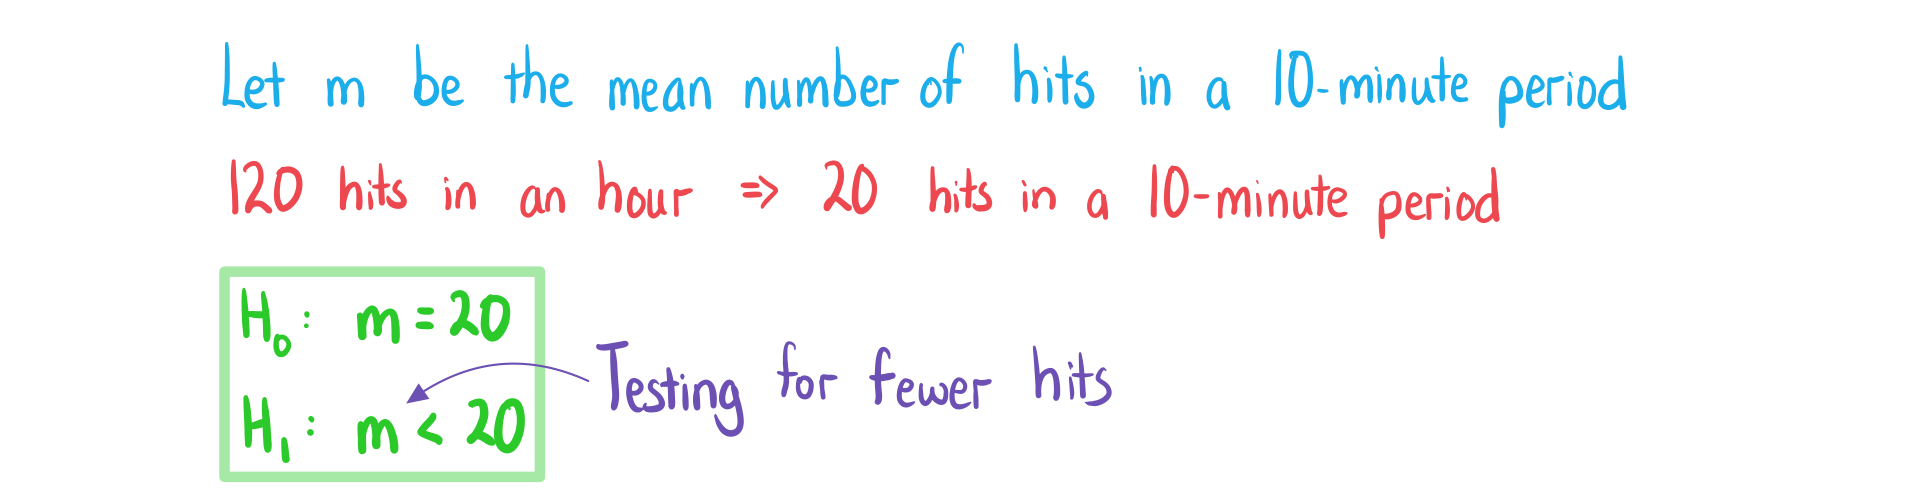 Let m be the mean number of hits in a 10-minute period
120 hits in an hour ⇒ 20 hits in a 10-minute period
H₀: m = 20
H₁: m < 20
Testing for fewer hits